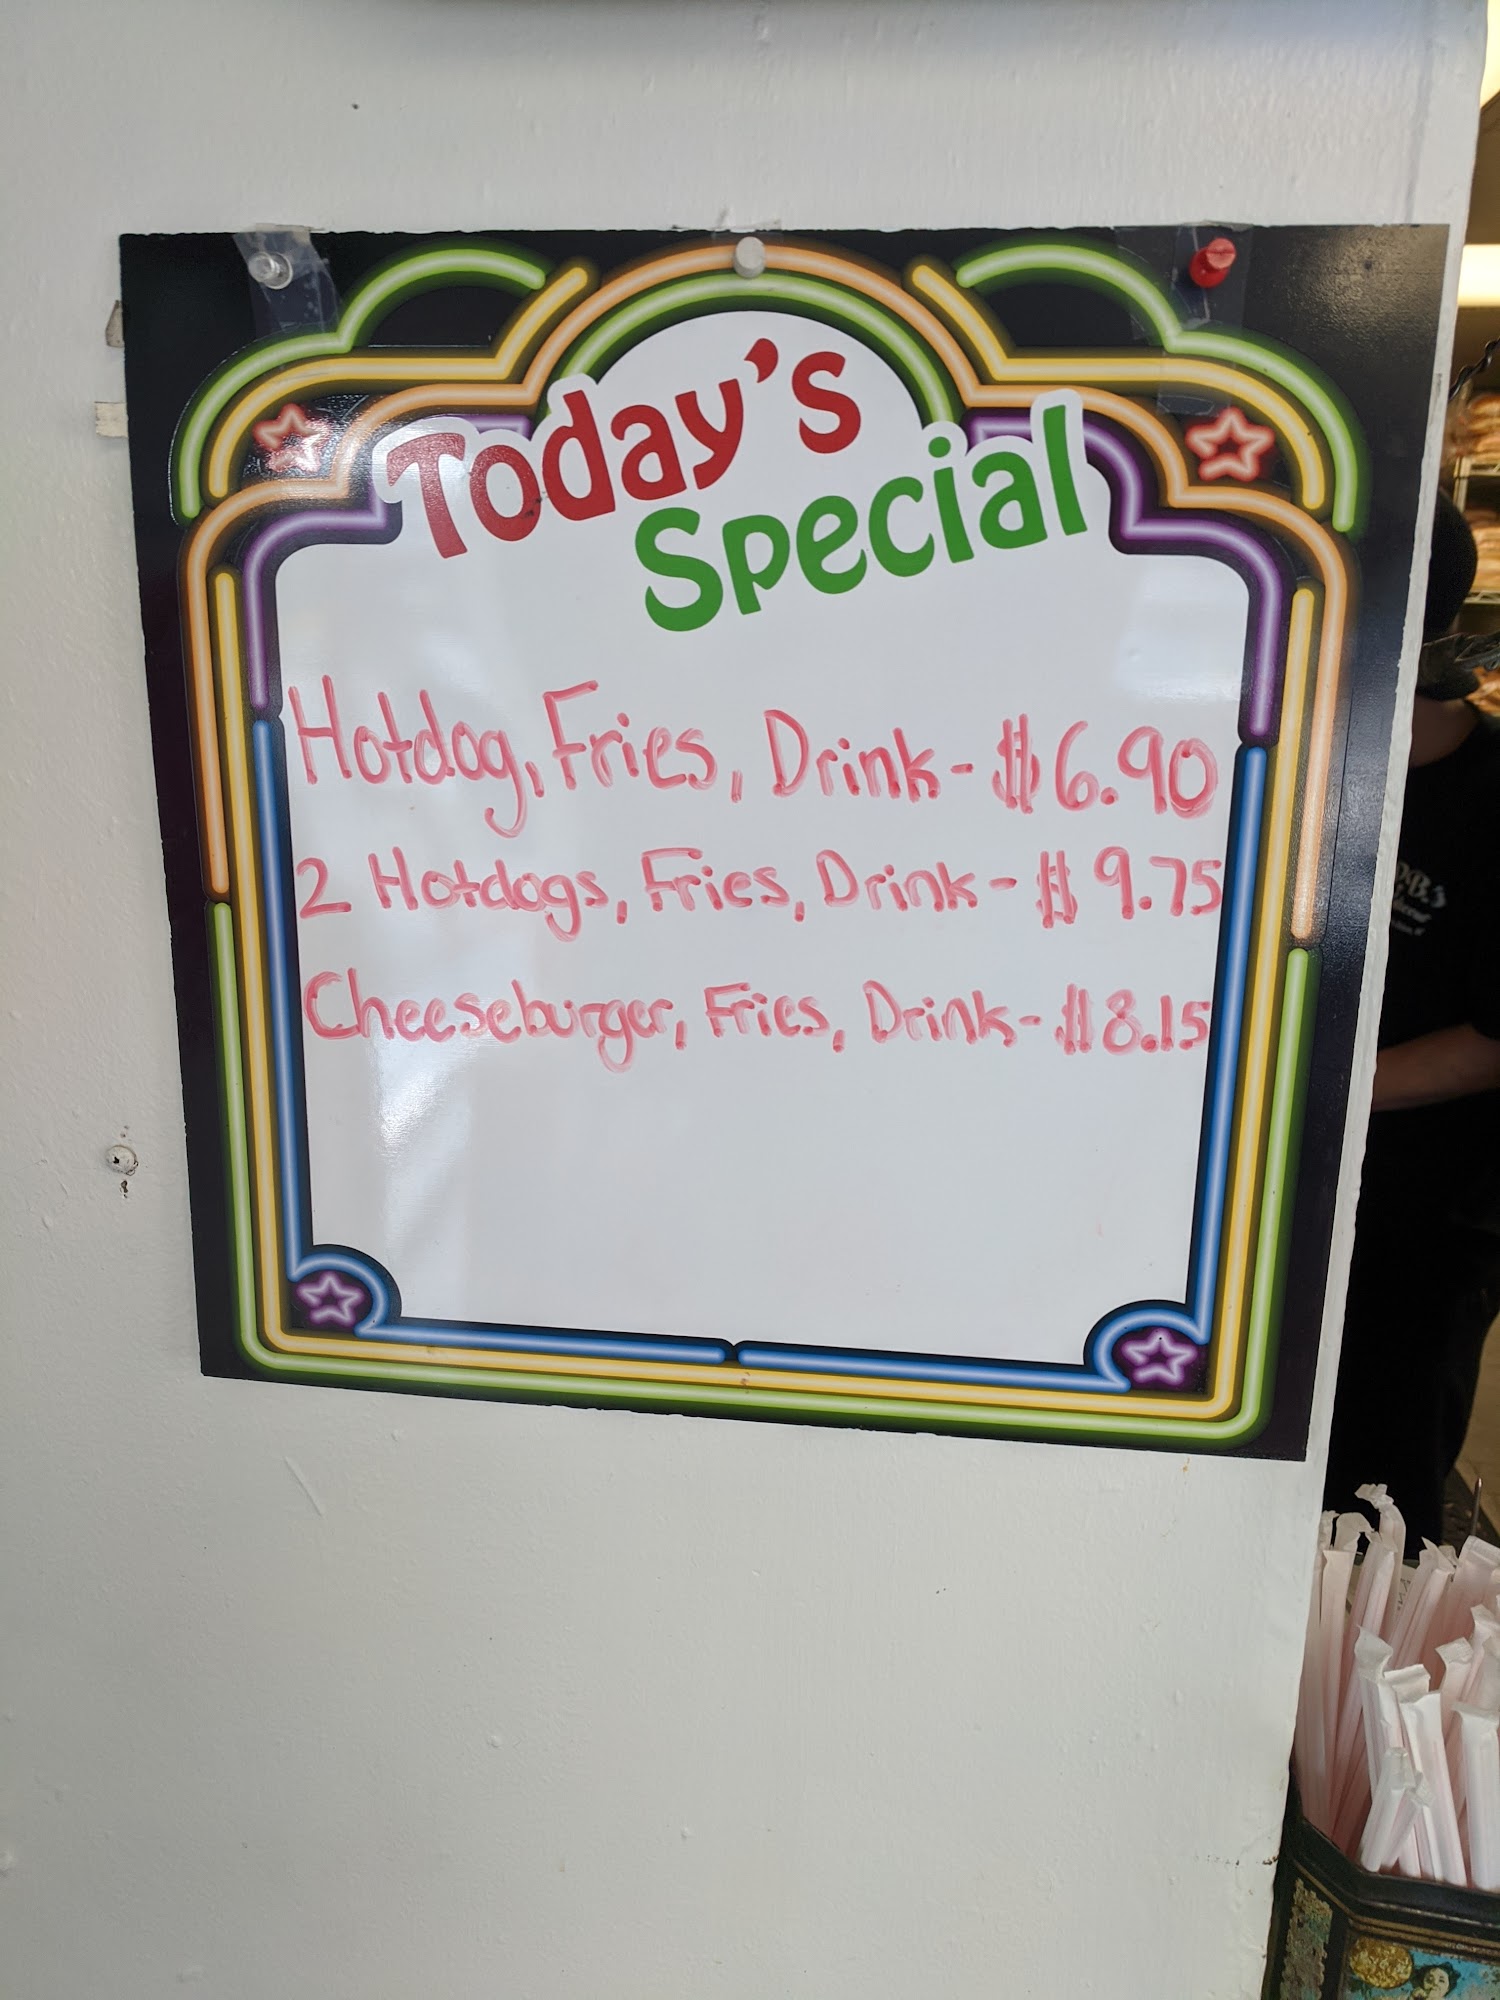 Today's
Special
Hotdog, Fries, Drink - $6.90
2 Hotdogs, Fries, Drink - $9.75
Cheeseburger, Fries, Drink - $8.15